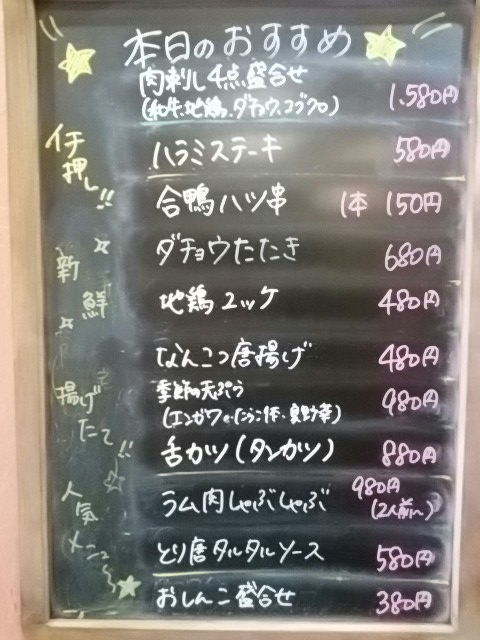 本日のおすすめ
肉刺し4点盛合せ
(和牛、地鶏、ダチョウ、コブクロ) 1.580円
イチ押し!!
ハラミステーキ 580円
合鴨ハツ串 1本 150円
新鮮
ダチョウたたき 680円
地鶏ユッケ 480円
揚げたて!!
なんこつ唐揚げ 480円
季節の天ぷら 980円
(エンガワ
舌カツ(タンカツ) 880円
人気メニュ〜
ラム肉しゃぶしゃぶ 980円
(2人前〜)
とり唐タルタルソース 580円
おしんこ盛合せ 380円